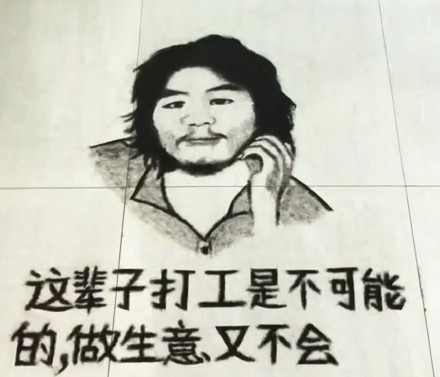 这辈子打工是不可能
的,做生意又不会